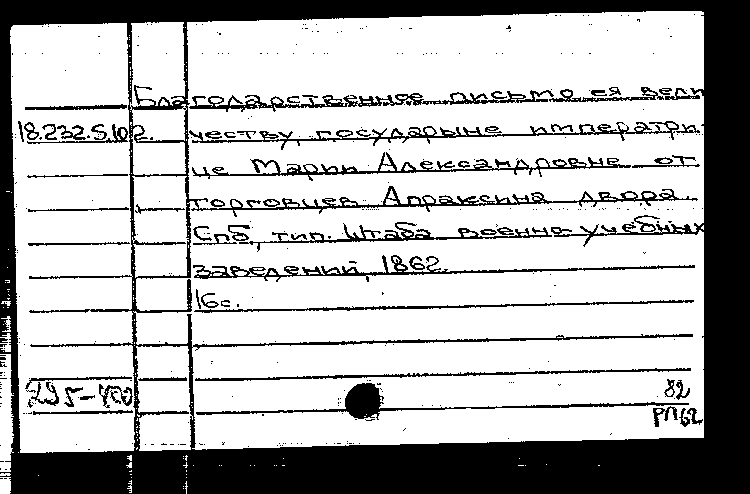 Благодарственное письмо ея вели
18.232.5.102. честву, государыне императри-
це Марии Александровне от
торговцев Апраксина двора.
Спб, тип. Штаба военно-учебных
заведений, 1862.
16с.
295-400 82
РП62